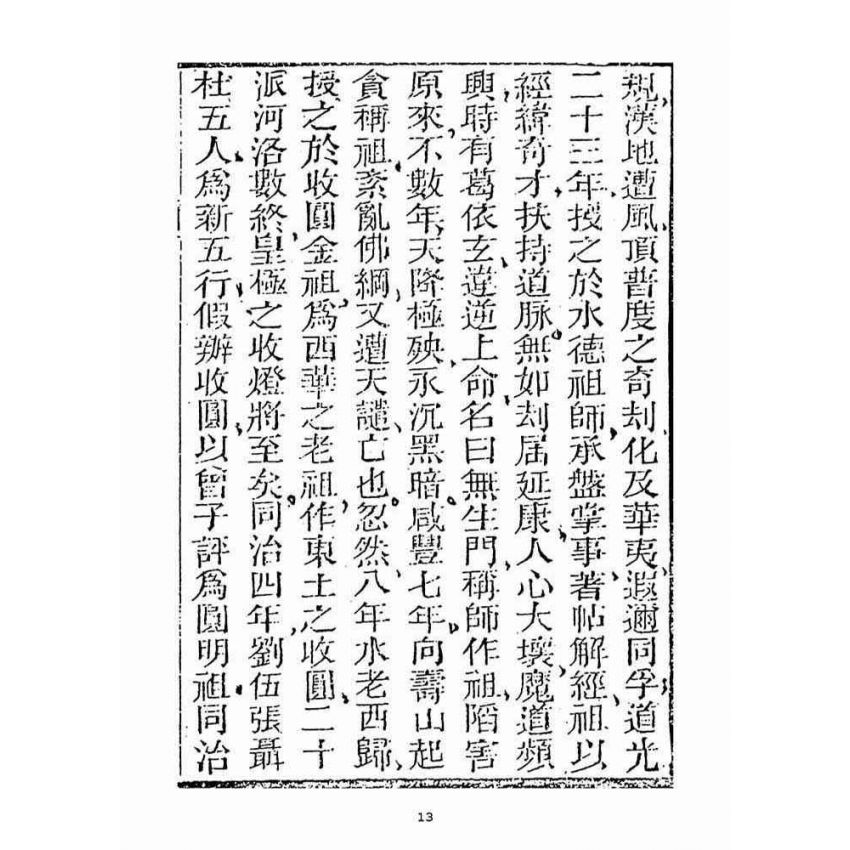 規漢地遭風、頂普度之奇刦、化及華夷、遐邇同孚、道光
二十三年、授之於水德祖師、承盤掌事、著帖解經、祖以
經緯奇才、扶持道脉、無如刦届延康、人心大壞、魔道頻
興、時有葛依玄、違逆上命、名曰無生門、稱師作祖、陷害
原來、不數年、天降極殃、永沉黑暗。咸豐七年。向壽山起
貪稱祖、紊亂佛綱、又遭天譴、亡也。忽然八年水老西歸、
授之於收圓金祖、爲西華之老祖、作東土之收圓、二十
派河洛數終、皇極之收燈將至矣。同治四年、劉伍張聶
杜五人、爲新五行、假辦收圓、以曾子評爲圓明祖。同治
13